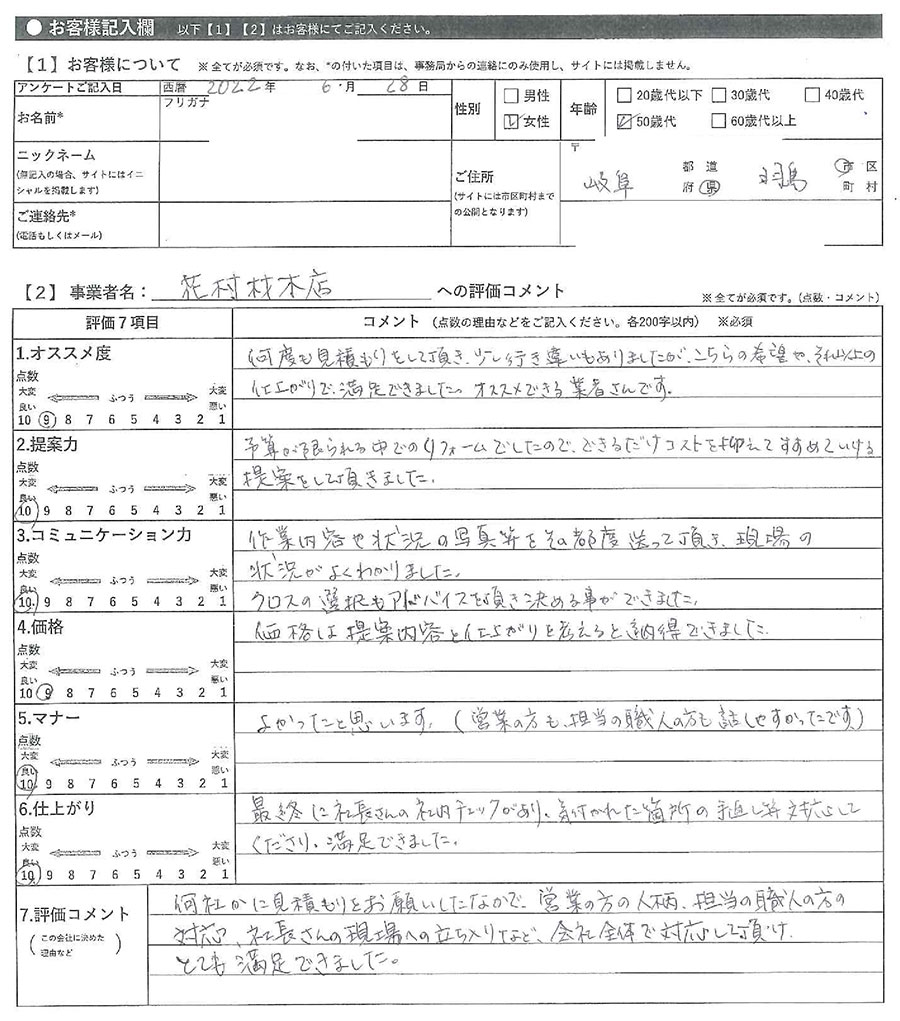 ● お客様記入欄 以下【1】【2】はお客様にてご記入ください。
【1】お客様について ※全てが必須です。なお、*の付いた項目は、事務局からの連絡にのみ使用し、サイトには掲載しません。
アンケートご記入日 西暦 2022年 6月 28日
お名前* フリガナ
性別 □男性 ☑女性
年齢 □20歳代以下 □30歳代 □40歳代 ☑50歳代 □60歳代以上
ニックネーム
(無記入の場合、サイトにはイニシャルを掲載します)
ご連絡先*
(電話もしくはメール)
ご住所
(サイトには市区町村までの公開となります)
〒
岐阜 都道府県 羽島 市区町村
【2】事業者名: 花村材木店 への評価コメント ※全てが必須です。(点数・コメント)
評価7項目 コメント (点数の理由などをご記入ください。各200字以内) ※必須
1.オススメ度
点数
大変良い ふつう 大変悪い
10 9 8 7 6 5 4 3 2 1
何度も見積もりをして頂き、少し行き違いもありましたが、こちらの希望や、それ以上の
仕上がりで、満足できました。オススメできる業者さんです。
2.提案力
点数
大変良い ふつう 大変悪い
10 9 8 7 6 5 4 3 2 1
予算が限られる中でのリフォームでしたので、できるだけコストを抑えてすすめていける
提案をして頂きました。
3.コミュニケーション力
点数
大変良い ふつう 大変悪い
10 9 8 7 6 5 4 3 2 1
作業内容や状況の写真等をその都度送って頂き、現場の
状況がよくわかりました。
クロスの選択もアドバイスを頂き決める事ができました。
4.価格
点数
大変良い ふつう 大変悪い
10 9 8 7 6 5 4 3 2 1
価格は提案内容と仕上がりを考えると納得できました。
5.マナー
点数
大変良い ふつう 大変悪い
10 9 8 7 6 5 4 3 2 1
よかったと思います。(営業の方も、担当の職人の方も話しやすかったです)
6.仕上がり
点数
大変良い ふつう 大変悪い
10 9 8 7 6 5 4 3 2 1
最終に社長さんの社内チェックがあり、気付かれた箇所の手直し等対応して
くださり、満足できました。
7.評価コメント
(この会社に決めた理由など)
何社かに見積もりをお願いしたなかで、営業の方の人柄、担当の職人の方の
対応、社長さんの現場への立ち入りなど、会社全体で対応して頂け、
とても満足できました。